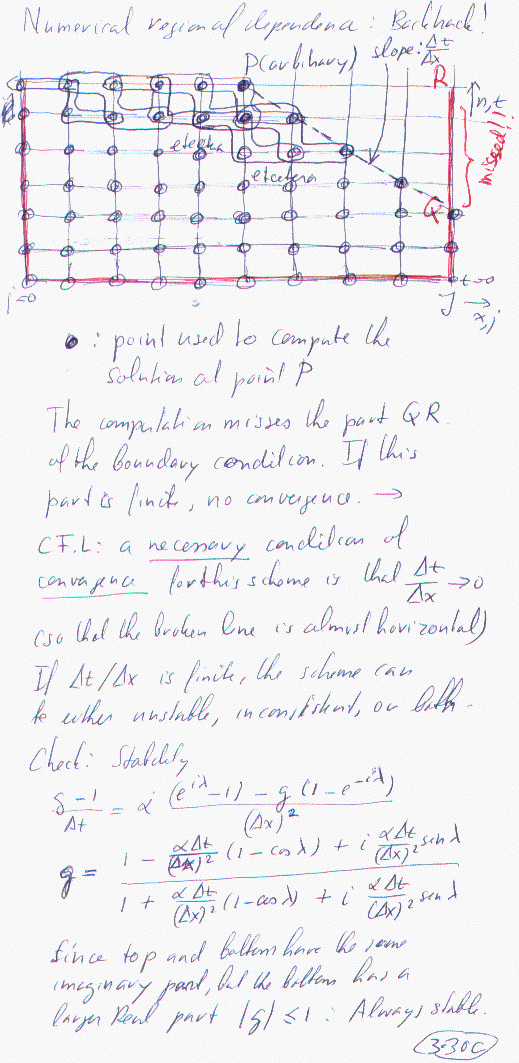 Numerical regional dependence: Backtrack!
P(arbitrary) slope: Δt/Δx
R
n,t
etcetera
etcetera
missed!!
Q
t=0
j=0
J → x,j
●: point used to compute the
solution at point P
The computation misses the part QR
of the boundary condition. If this
part is finite, no convergence. →
C.F.L: a necessary condition of
convergence for this scheme is that Δt/Δx → 0
(so that the broken line is almost horizontal)
If Δt/Δx is finite, the scheme can
be either unstable, inconsistent, or both.
Check: Stability
(g-1)/Δt = α ((e^{iλ}-1) - g(1-e^{-iλ}))/(Δx)²
g = (1 - αΔt/(Δx)² (1-cosλ) + i αΔt/(Δx)² sinλ)/(1 + αΔt/(Δx)² (1-cosλ) + i αΔt/(Δx)² sinλ)
Since top and bottom have the same
imaginary part, but the bottom has a
larger Real part |g| ≤ 1: Always stable.
3.30c